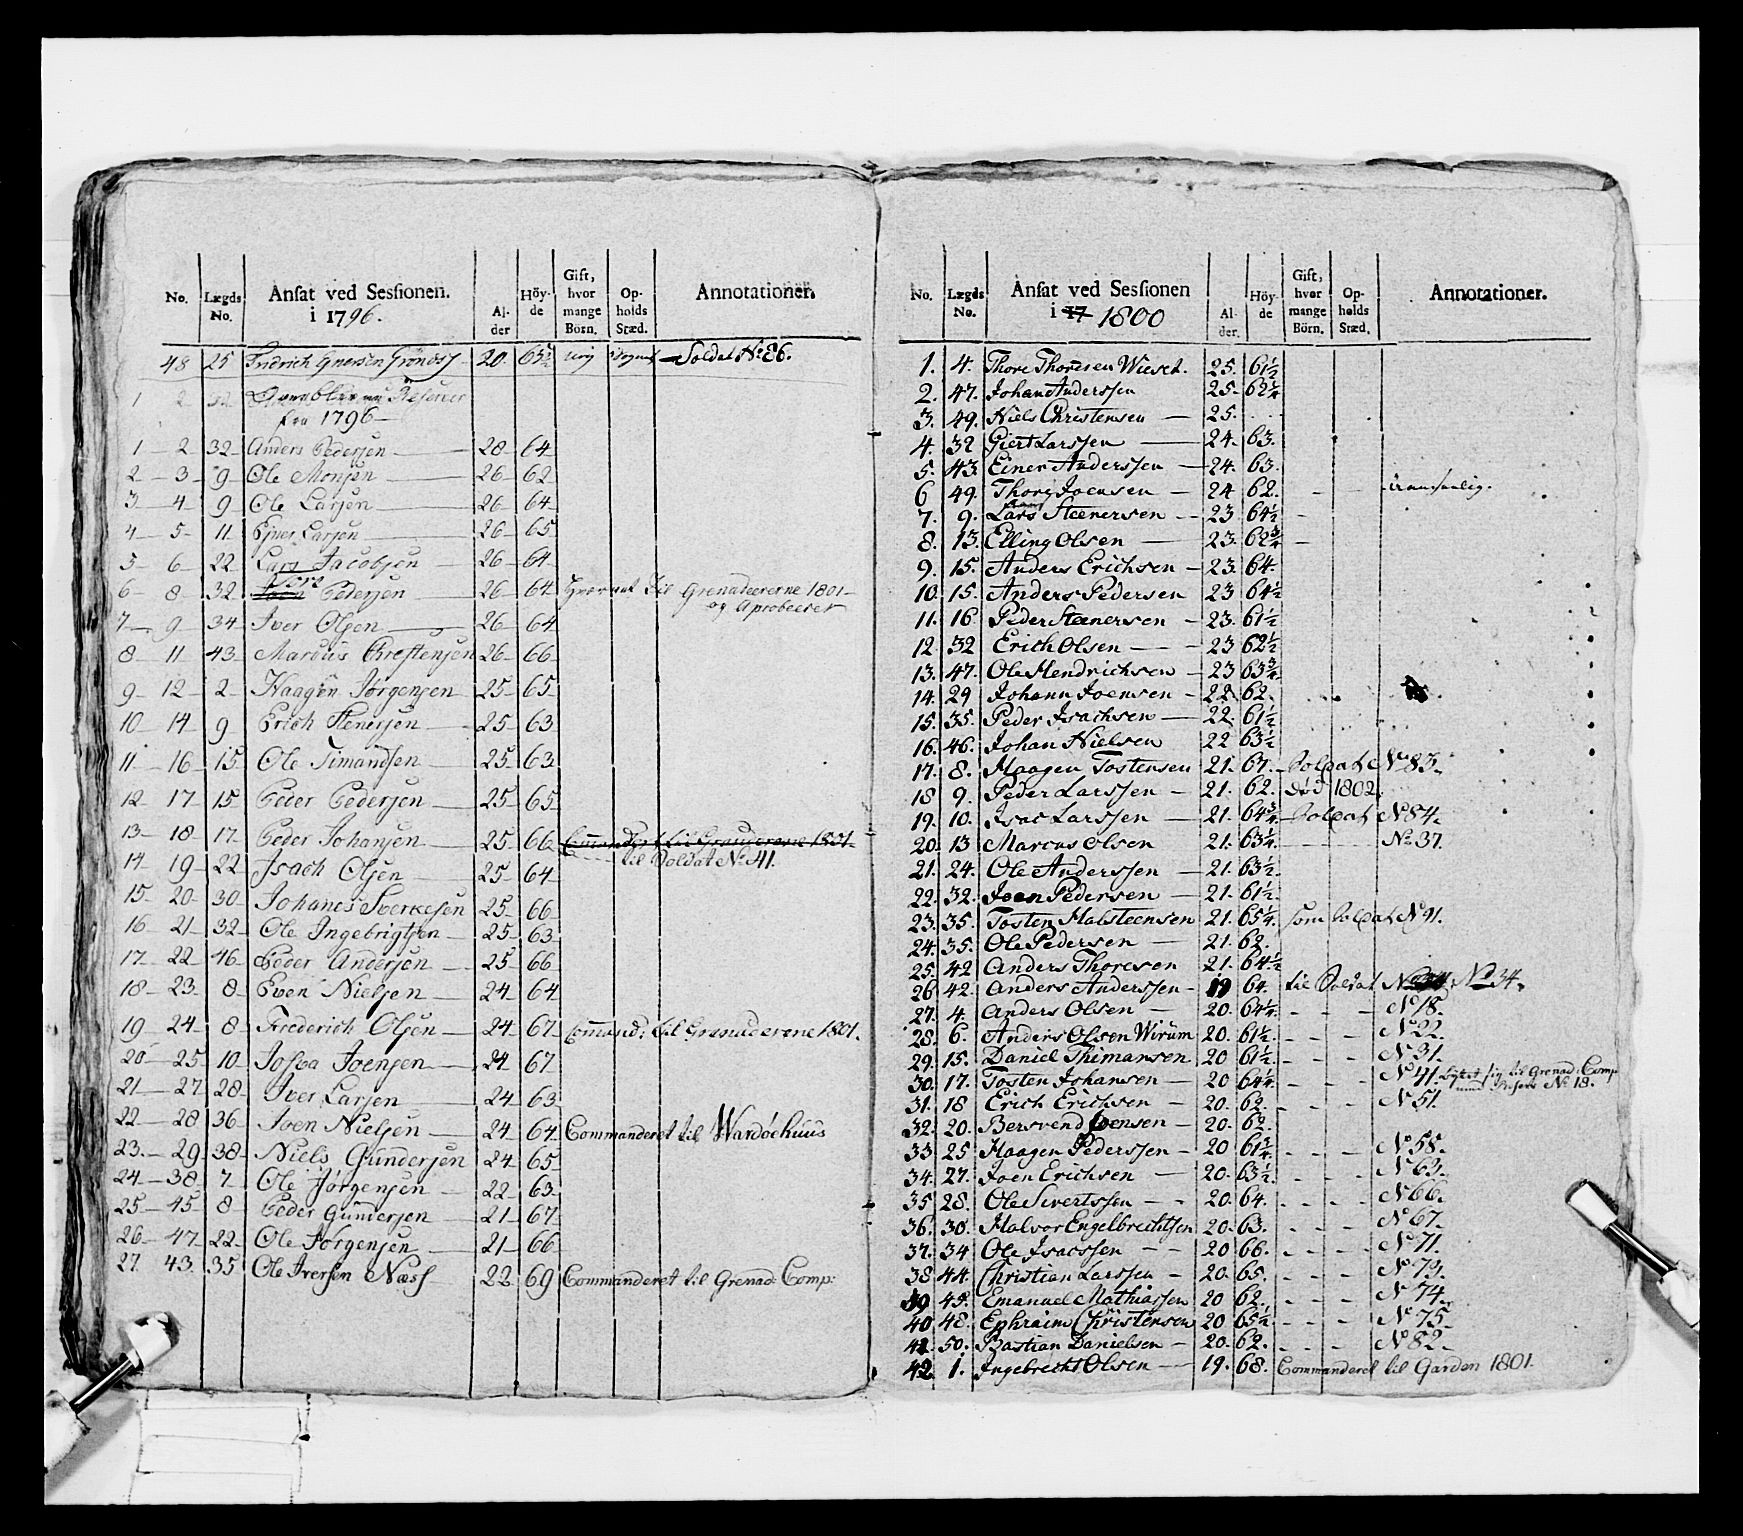 No. Lægds No. Ansat ved Sessionen. i 1796. Alder Höyde Gift, hvor mange Börn. Opholds Stæd. Annotationer.
48 25 Fridrich 20 65½ ung Soldat No 86.
1 2 32
fra 1796
1 2 32 Anders Pedersen 28 64
2 3 9 Ole Monsen 26 62
3 4 9 Ole Larsen 26 64
4 5 11 Larsen 26 65
5 6 22 Lars Jacobsen 26 64
6 8 32 Pedersen 26 64 til Grenadeererne 1801
og aprobeeret
7 9 34 Iver Olsen 26 64
8 11 43 Marcus Chrestensen 26 66
9 12 2 Haagen Jørgensen 25 65
10 14 9 Erich Stenersen 25 63
11 16 15 Ole Timandsen 25 63
12 17 15 Peder Pedersen 25 65
13 18 17 Peder Johansen 25 66 Commanderet til Grenadererne 1801
til Soldat No 41.
14 19 22 Isach Olsen 25 64
15 20 30 Johanes Sverkesen 25 66
16 21 32 Ole Ingebrigtsen 25 63
17 22 46 Peder Andersen 25 66
18 23 8 Even Nielsen 24 64
19 24 8 Frederich Olsen 24 67 Command: til Grenadererne 1801.
20 25 10 Joensen 24 67
21 27 28 Iver Larsen 24 63
22 28 36 Joen Nielsen 24 64 Commanderet til Wardøehuus
23 29 38 Niels Gundersen 24 65
24 38 7 Ole Jørgensen 22 63
25 45 8 Peder Gundersen 21 67
26 47 22 Ole Jørgensen 21 66
27 43 35 Ole Iversen Næss 22 69 Commanderet til Grenad: Comp:
No. Lægds No. Ansat ved Sessionen i 17 1800 Alder. Höyde Gift, hvor mange Börn. Opholds Stæd. Annotationer.
1. 4. Thore Thoresen Wieset. 25. 61½
2. 47. Johan Anderssen 25. 62¼
3. 49. Niels Christensen 25.
4. 32 Giert Larssen 24. 63.
5. 43. Einer Anderssen 24. 63.
6 49. Thore Joensen 24 62.
7. 9. Lars Steenersen 23 64½
8. 13. Elling Olsen 23. 62¾
9. 15. Anders Erichsen 23. 64.
10. 15. Anders Pedersen 23 64½
11. 16. Peder Steenersen 23. 61½
12. 32 Erich Olsen 23 62½
13. 47. Ole Hendrichsen 23 63¾
14. 29 Johann Joensen 22. 62.
15. 35. Peder Isachsen 22 61½
16. 46. Johan Nielsen 22 63½
17. 8. Haagen Tostensen 21. 67. Soldat No 83.
18 9. Peder Larssen 21. 62. Død 1802.
19. 10. Isac Larssen 21. 64¾ Soldat No 84.
20. 13 Marcus Olsen 21. 63¼ No 37.
21. 24. Ole Anderssen 21. 63½
22. 32. Joen Pedersen 21. 61½
23. 35. Tosten Halsteensen 21. 65¼ som Soldat No 91.
24. 35. Ole Pedersen 21. 62.
25. 42 Anders Thoresen 21. 64½
26. 42. Anders Anderssen 19 64. til Soldat No 34.
27. 4. Anders Olsen 20. 64¼ No 18.
28. 6. Anders Olsen Wirum 20. 61½ No 22.
29. 15. Daniel Thimansen 20 61½ No 31.
30. 17. Tosten Johansen 20 64¼ No 41. byttet sig til Grenad: Comp
Reserve No 18.
31. 18 Erich Erichsen 20. 62. No 51.
32. 20. Bersvend Joensen 20. 62.
33 25 Haagen Pederssen 20 61¾ No 58.
34. 27. Joen Erichsen 20. 63½ No 63.
35 28. Ole Sivertssen 20. 64. No 66.
36. 30. Halvor Engelbrechtsen 20. 63. No 67.
37. 34 Ole Isacssen 20 66. No 71.
38 44. Christian Larssen 20. 65. No 73.
39 45. Emanuel Mathiassen 20 62. No 74.
40 48. Ephraim Christensen 20 65½ No 75.
41. 50. Bastian Danielsen 20. 62. No 82.
42 1. Ingebrecht Olsen 19. 68. Commanderet til Garden 1801.